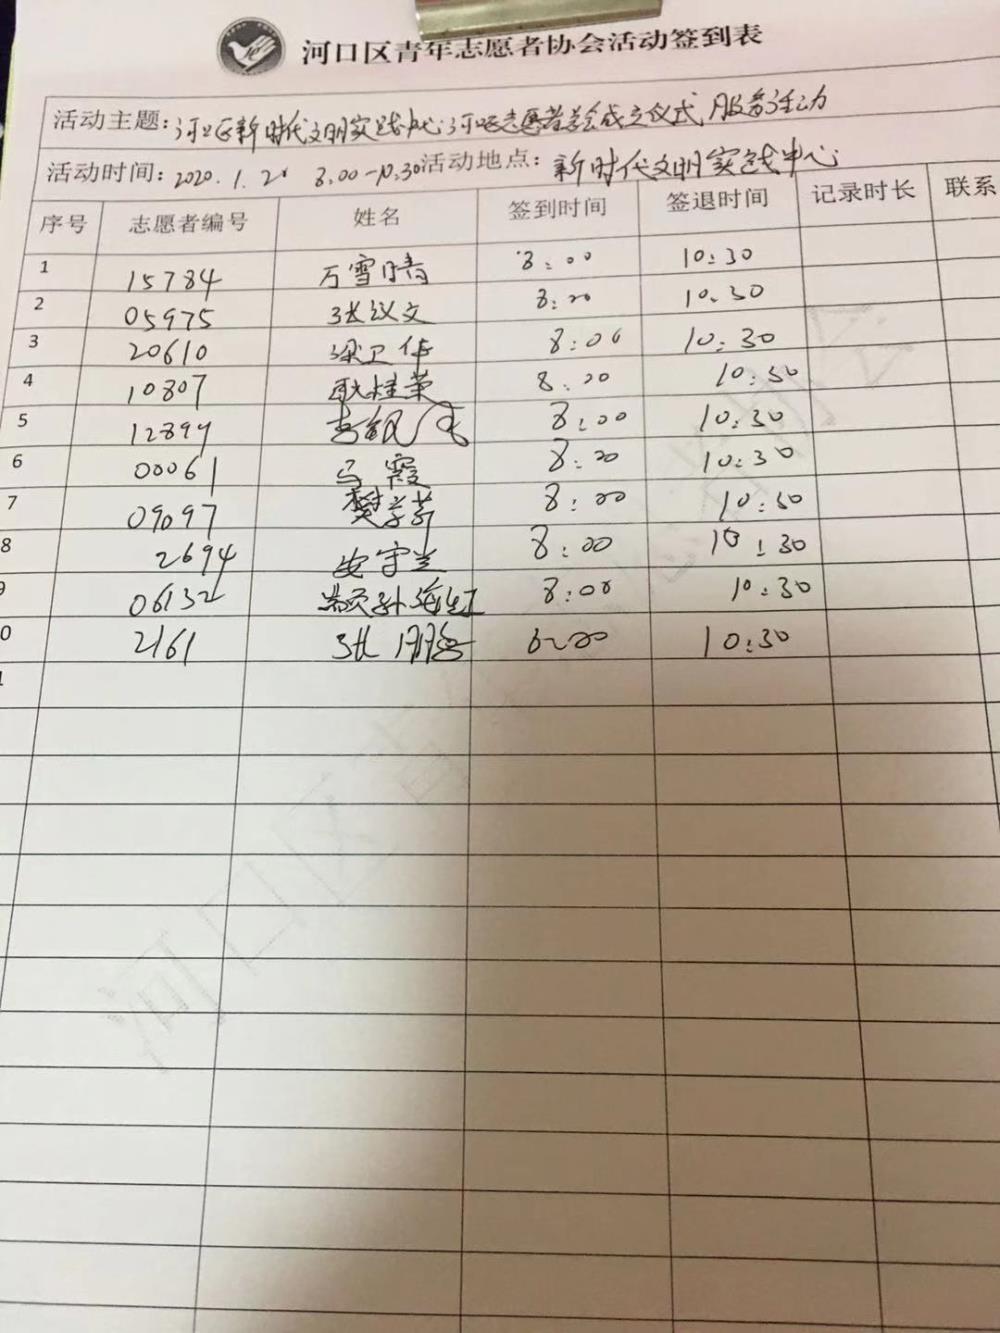 河口区青年志愿者协会活动签到表
活动主题:河口区新时代文明实践中心河口志愿者学会成立仪式服务活动
活动时间:2020.1.2 8:00-10:30 活动地点:新时代文明实践中心
序号 志愿者编号 姓名 签到时间 签退时间 记录时长 联系
1 15784 万雪晴 8:00 10:30
2 05975 张议文 8:00 10:30
3 20610 梁卫作 8:00 10:30
4 10807 耿桂荣 8:00 10:30
5 12894 8:00 10:30
6 00061 马霞 8:00 10:30
7 09097 樊学芬 8:00 10:30
8 2694 安守兰 8:00 10:30
9 06132 颛孙海红 8:00 10:30
0 2161 张 8:00 10:30
河口区青年志愿者协会